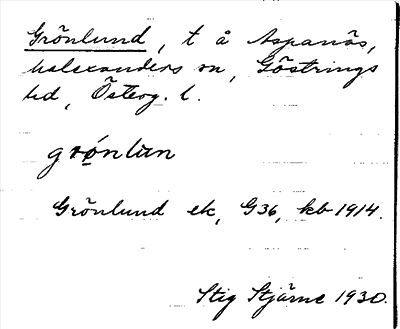 Grönlund, t å Aspanäs,
Malexanders sn, Göstrings
hd, Österg. l.
grønlun
Grönlund ek, G36, kb 1914.
Stig Stjärne 1930.